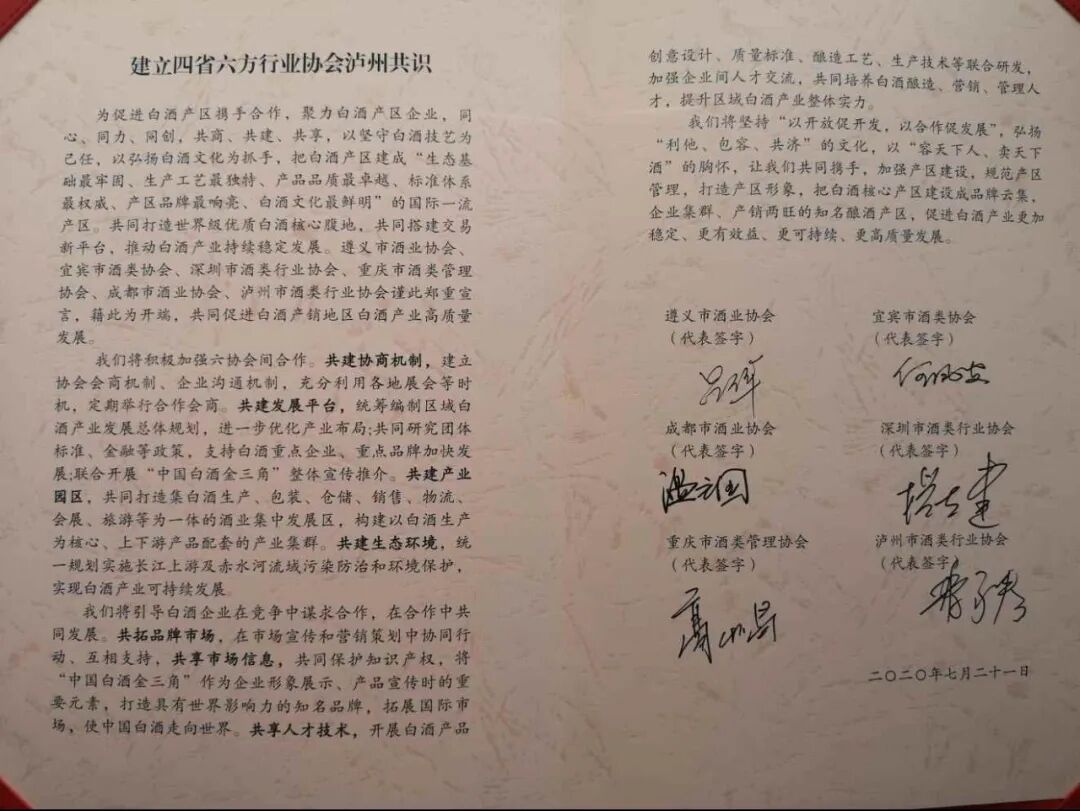 建立四省六方行业协会泸州共识
为促进白酒产区携手合作，聚力白酒产区企业，同
心、同力、同创，共商、共建、共享，以坚守白酒技艺为
己任，以弘扬白酒文化为抓手，把白酒产区建成“生态基
础最牢固、生产工艺最独特、产品品质最卓越、标准体系
最权威、产区品牌最响亮、白酒文化最鲜明”的国际一流
产区。共同打造世界级优质白酒核心腹地，共同搭建交易
新平台，推动白酒产业持续稳定发展。遵义市酒业协会、
宜宾市酒类协会、深圳市酒类行业协会、重庆市酒类管理
协会、成都市酒业协会、泸州市酒类行业协会谨此郑重宣
言，藉此为开端，共同促进白酒产销地区白酒产业高质量
发展。
我们将积极加强六协会间合作。共建协商机制，建立
协会会商机制、企业沟通机制，充分利用各地展会等时
机，定期举行合作会商。共建发展平台，统筹编制区域白
酒产业发展总体规划，进一步优化产业布局;共同研究团体
标准、金融等政策，支持白酒重点企业、重点品牌加快发
展;联合开展“中国白酒金三角”整体宣传推介。共建产业
园区，共同打造集白酒生产、包装、仓储、销售、物流、
会展、旅游等为一体的酒业集中发展区，构建以白酒生产
为核心、上下游产品配套的产业集群。共建生态环境，统
一规划实施长江上游及赤水河流域污染防治和环境保护，
实现白酒产业可持续发展。
我们将引导白酒企业在竞争中谋求合作，在合作中共
同发展。共拓品牌市场，在市场宣传和营销策划中协同行
动、互相支持，共享市场信息，共同保护知识产权，将
“中国白酒金三角”作为企业形象展示、产品宣传时的重
要元素，打造具有世界影响力的知名品牌，拓展国际市
场，使中国白酒走向世界。共享人才技术，开展白酒产品
创意设计、质量标准、酿造工艺、生产技术等联合研发，
加强企业间人才交流，共同培养白酒酿造、营销、管理人
才，提升区域白酒产业整体实力。
我们将坚持“以开放促开发，以合作促发展”，弘扬
“利他、包容、共济”的文化，以“容天下人、卖天下
酒”的胸怀，让我们共同携手，加强产区建设，规范产区
管理，打造产区形象，把白酒核心产区建设成品牌云集、
企业集群、产销两旺的知名酿酒产区，促进白酒产业更加
稳定、更有效益、更可持续、更高质量发展。
遵义市酒业协会
（代表签字）
宜宾市酒类协会
（代表签字）
成都市酒业协会
（代表签字）
深圳市酒类行业协会
（代表签字）
重庆市酒类管理协会
（代表签字）
泸州市酒类行业协会
（代表签字）
二〇二〇年七月二十一日